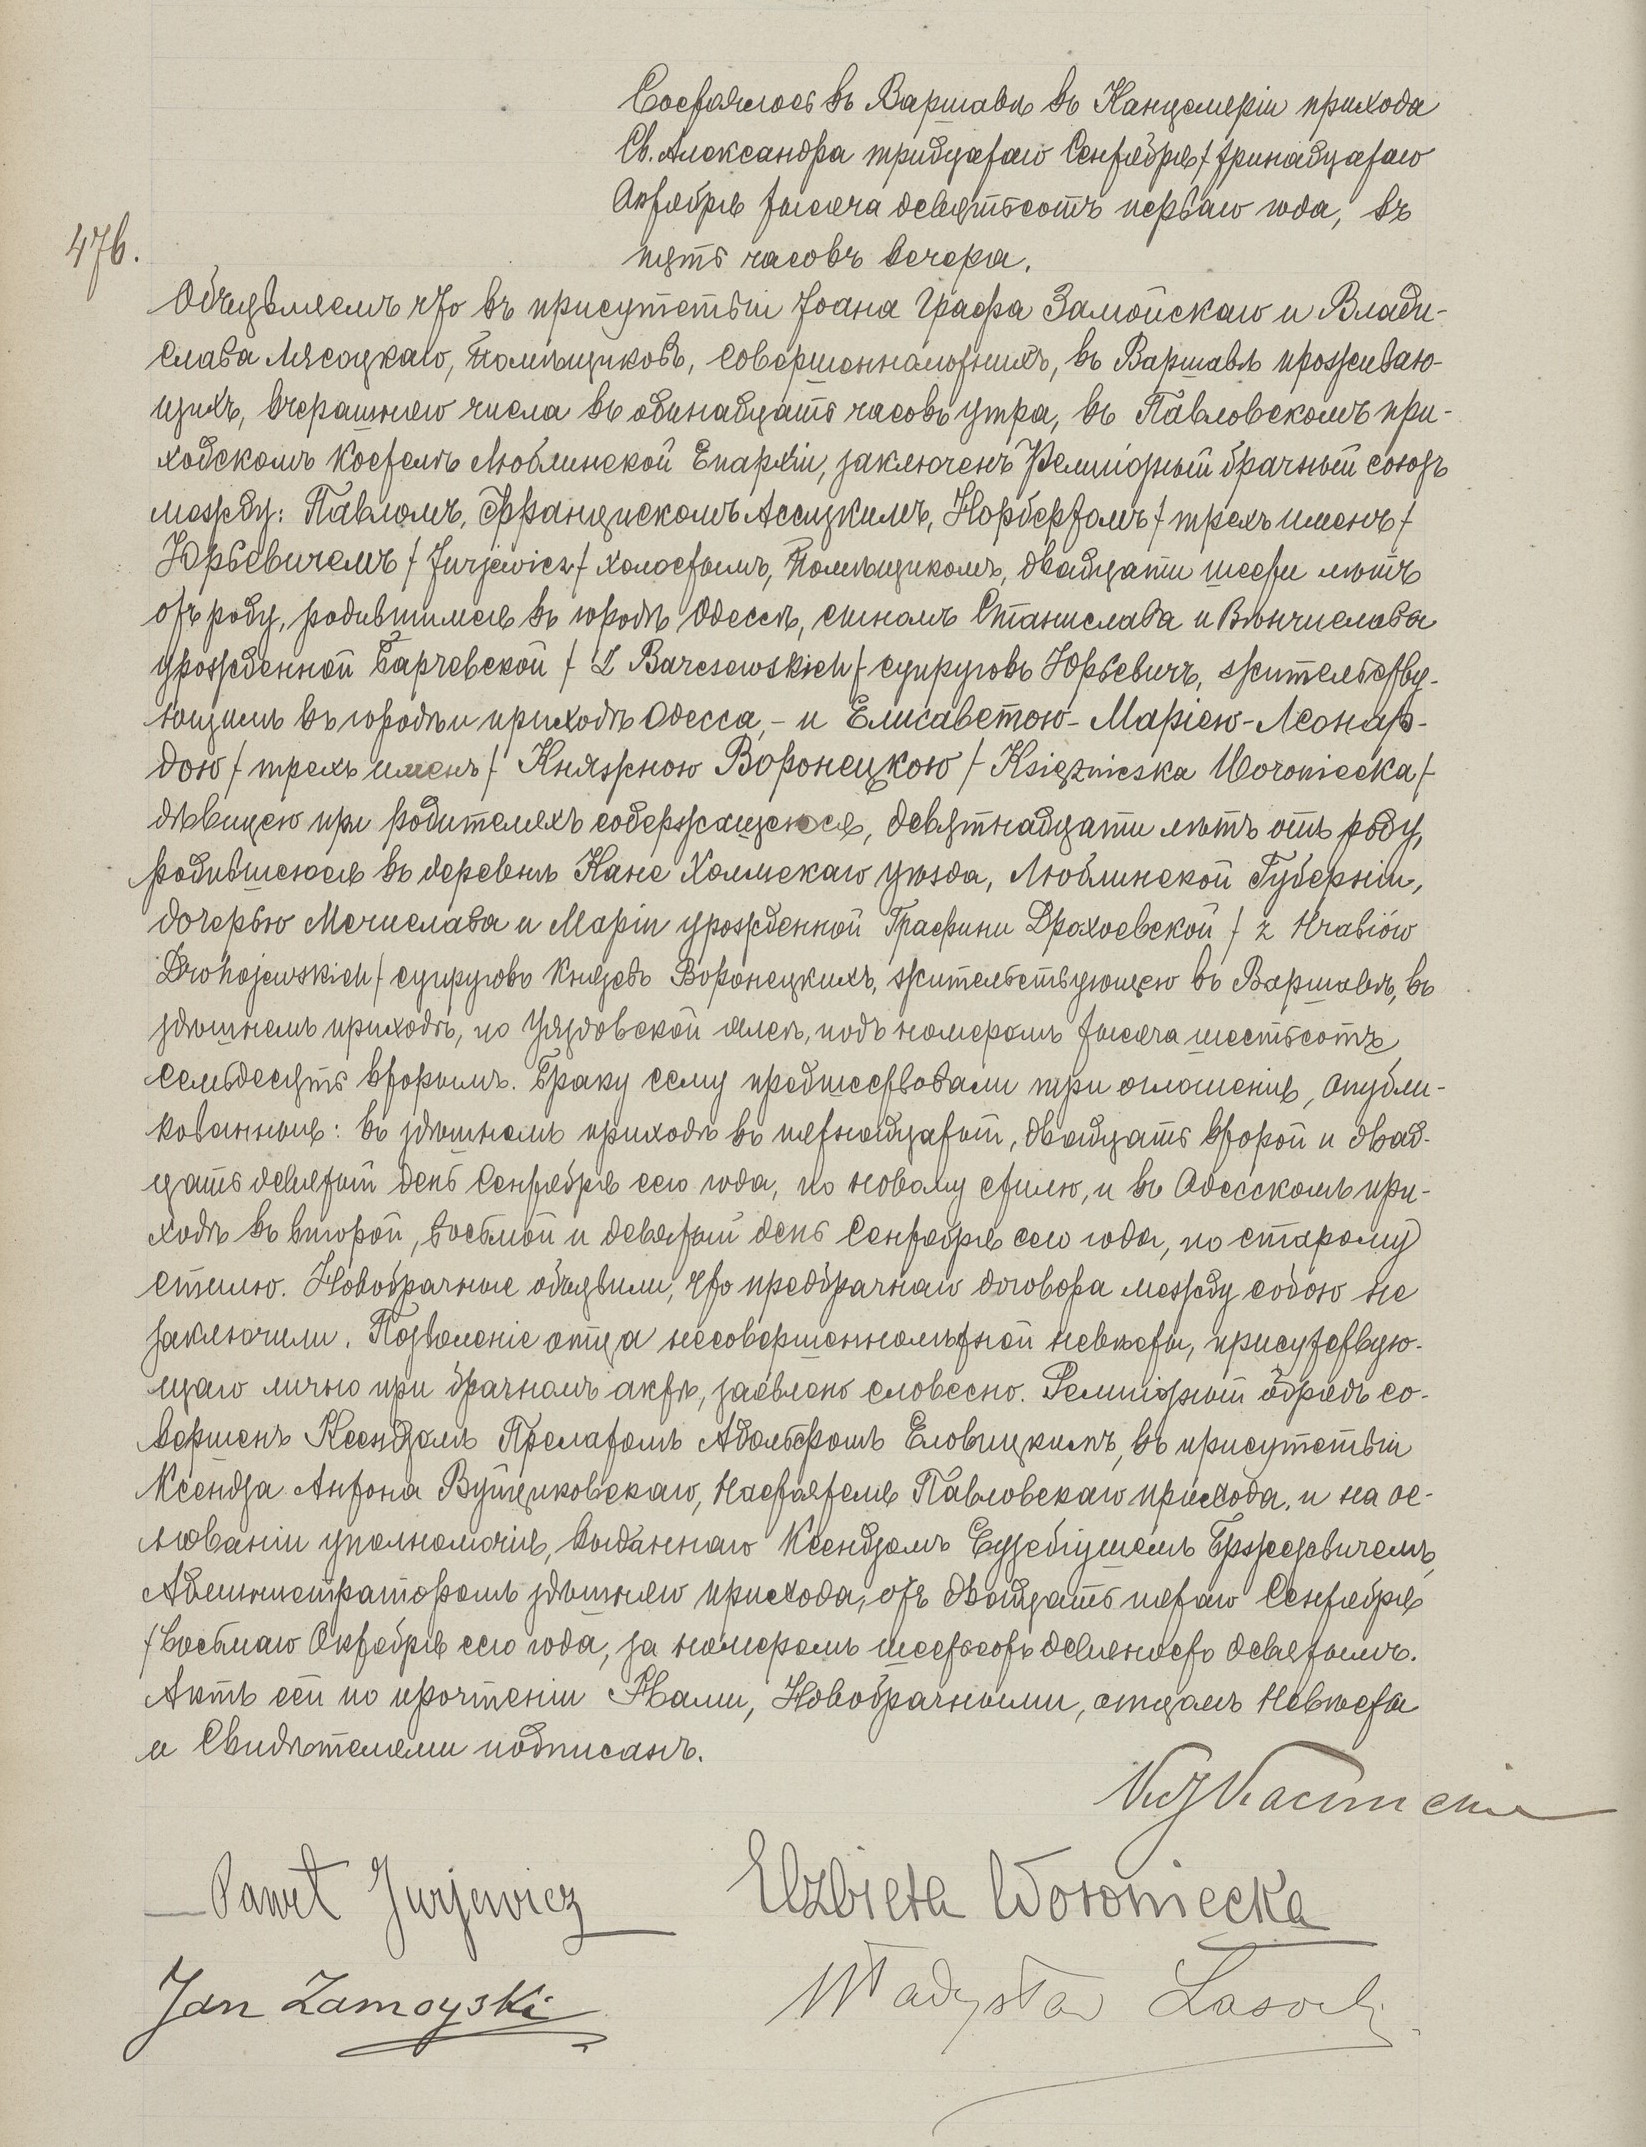 Состоялось въ Варшавѣ въ Канцеляріи прихода
Св. Александра тридцатаго Сентября / тринадцатаго
Октября тысяча девятьсотъ перваго года, въ
пять часовъ вечера.
476.
Объявляемъ что въ присутствіи Іоана Графа Замойскаго и Влади-
слава Лясоцкаго, помѣщиковъ, совершеннолѣтнихъ, въ Варшавѣ прожеваю-
щихъ, вчерашняго числа въ одинадцать часовъ утра, въ Павловскомъ при-
ходскомъ костелѣ Люблинской Епархіи, заключенъ Религіозный брачный союзъ
между: Павломъ, Францискомъ Ассизкимъ, Норбертомъ / трехъ именъ /
Юрьевичемъ / Jurjewicz / холостымъ, помѣщикомъ, двадцати шести лѣтъ
отъ роду, родившимся въ городѣ Одессѣ, сыномъ Станислава и Вѣнчислава
урожденной Барчевской / z Barczewskich / супруговъ Юрьевичъ, жительству-
ющимъ въ городѣ и приходѣ Одесса, - и Елисаветою - Маріею - Леонар-
дою / трехъ именъ / Княжною Воронецкою / Księżniczka Woroniecka /
дѣвицею при родителяхъ содержащеюся, девятнадцати лѣтъ отъ роду,
родившеюся въ деревнѣ Кане Холмскаго уѣзда, Люблинской Губерніи,
дочерью Мечислава и Маріи урожденной Графини Дрохоевской / z Hrabiów
Drohojewskich / супруговъ Князей Воронецкихъ, жительствующею въ Варшавѣ, въ
здѣшнемъ приходѣ, по Уяздовской алеѣ, подъ номеромъ тысяча шестьсотъ
семьдесятъ вторымъ. Браку сему предшествовали три оглошенія, опубли-
кованныя: въ здѣшнемъ приходѣ въ пятнадцатый, двадцать второй и двад-
цать девятый день Сентября сего года, по новому стилю, и въ Одесскомъ при-
ходѣ въ второй, восьмой и девятый день Сентября сего года, по старому
стилю. Новобрачные объявили, что предбрачнаго договора между собою не
заключили. Позволеніе отца несовершеннолѣтней невѣсты, присутствую-
щаго лично при брачномъ актѣ, заявлено словесно. Религіозный обрядъ со-
вершенъ Ксендзомъ Прелатомъ Адольфомъ Еловицкимъ, въ присутствіи
Ксендза Антона Вуйциковскаго, Настоятеля Павловскаго прихода, и на ос-
нованіи уполномочія, выданнаго Ксендзомъ Евзебіушемъ Брзезевичемъ,
Администраторомъ здѣшняго прихода, отъ двадцать пятаго Сентября
/ восьмаго Октября сего года, за номеромъ шестьсотъ девяносто девятымъ.
Актъ сей по прочтеніи Нами, Новобрачными, отцомъ Невѣсты
и Свидѣтелями подписанъ.
Paweł Jurjewicz Elżbieta Woroniecka
Jan Zamoyski Władysław Lasocki